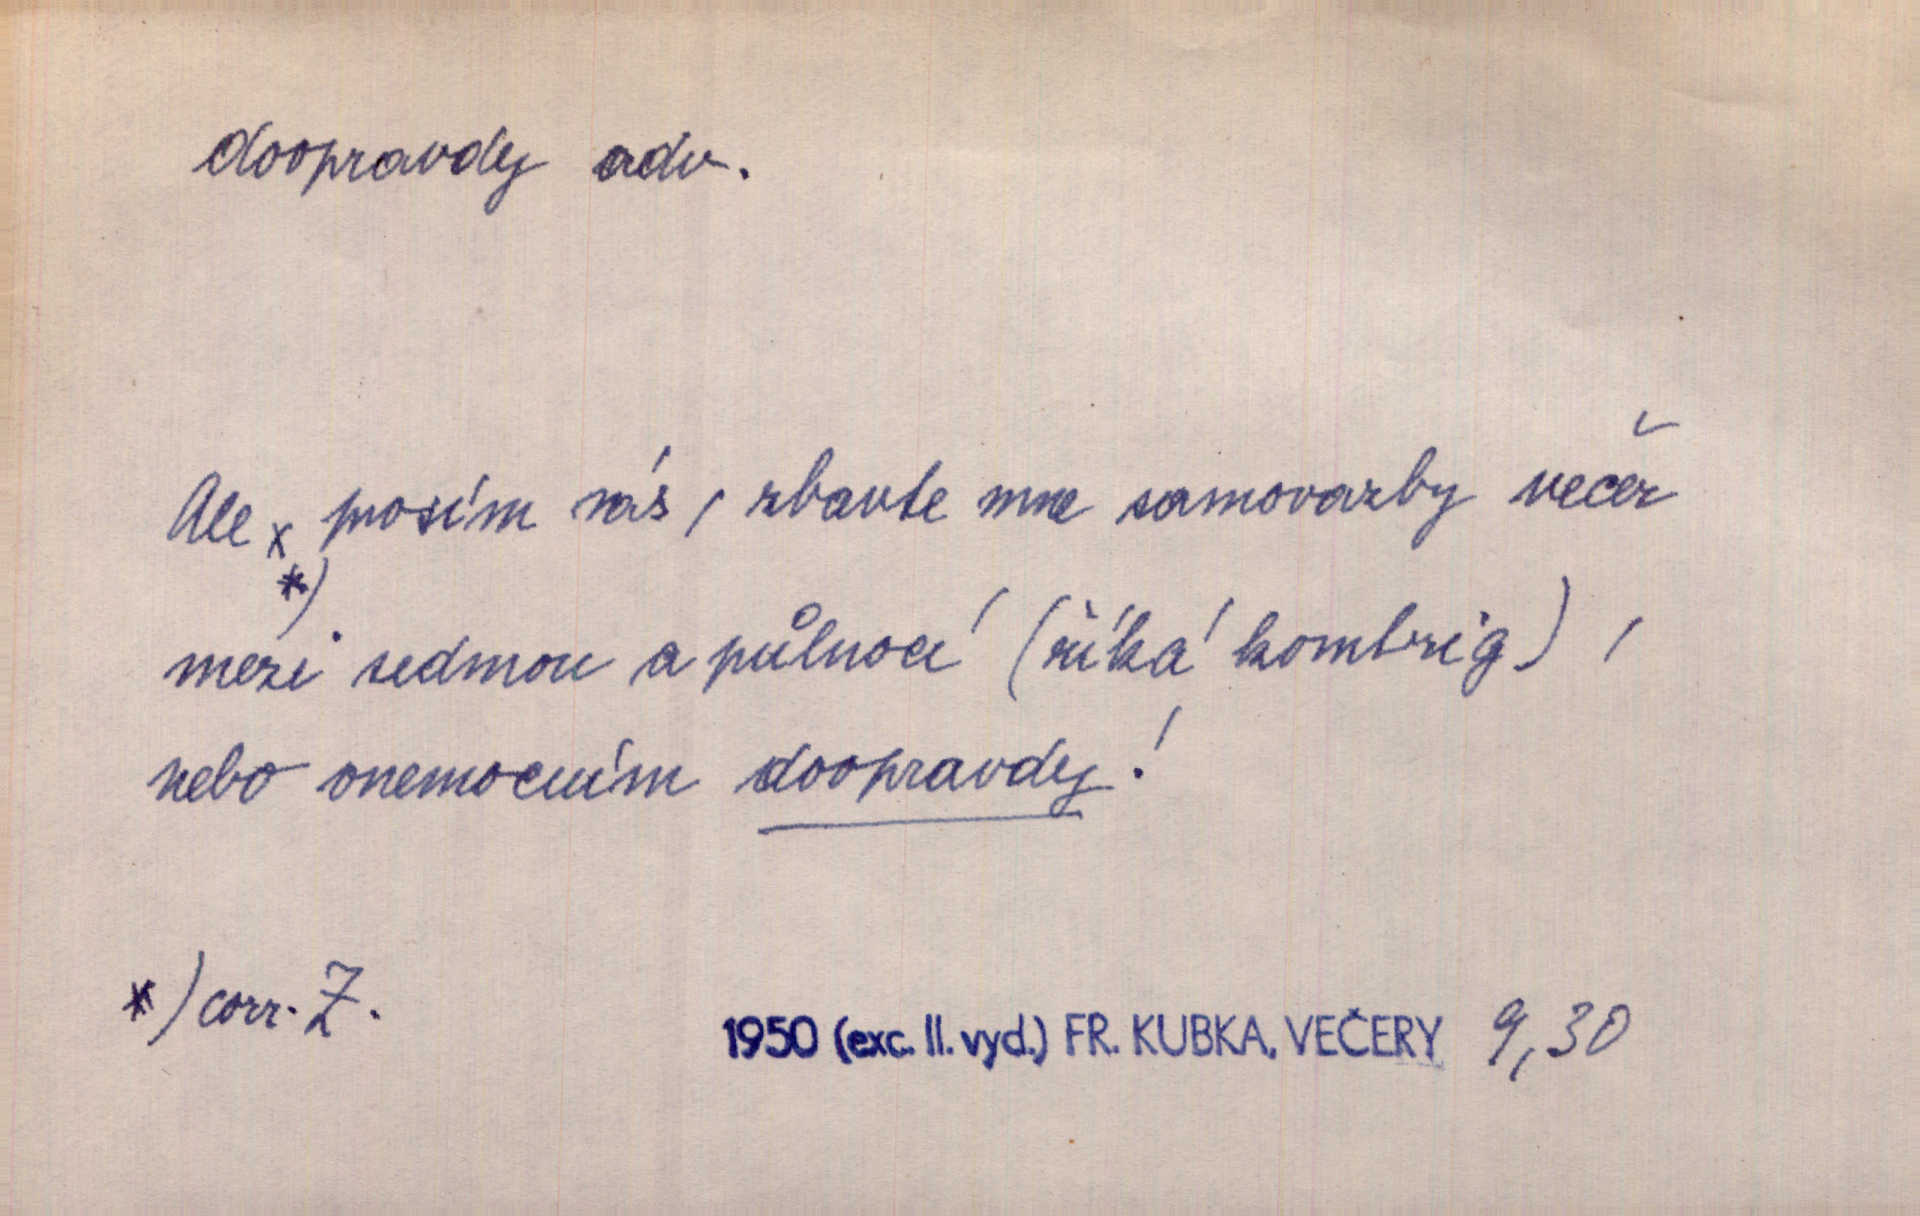 doopravdy adv.
Ale x prosím vás, zbavte mne samovazby večer
*)
mezi sedmou a půlnocí (říká kombrig),
nebo onemocním doopravdy!
*) corr. Z.
1950 (exc. II. vyd.) FR. KUBKA, VEČERY 9,30